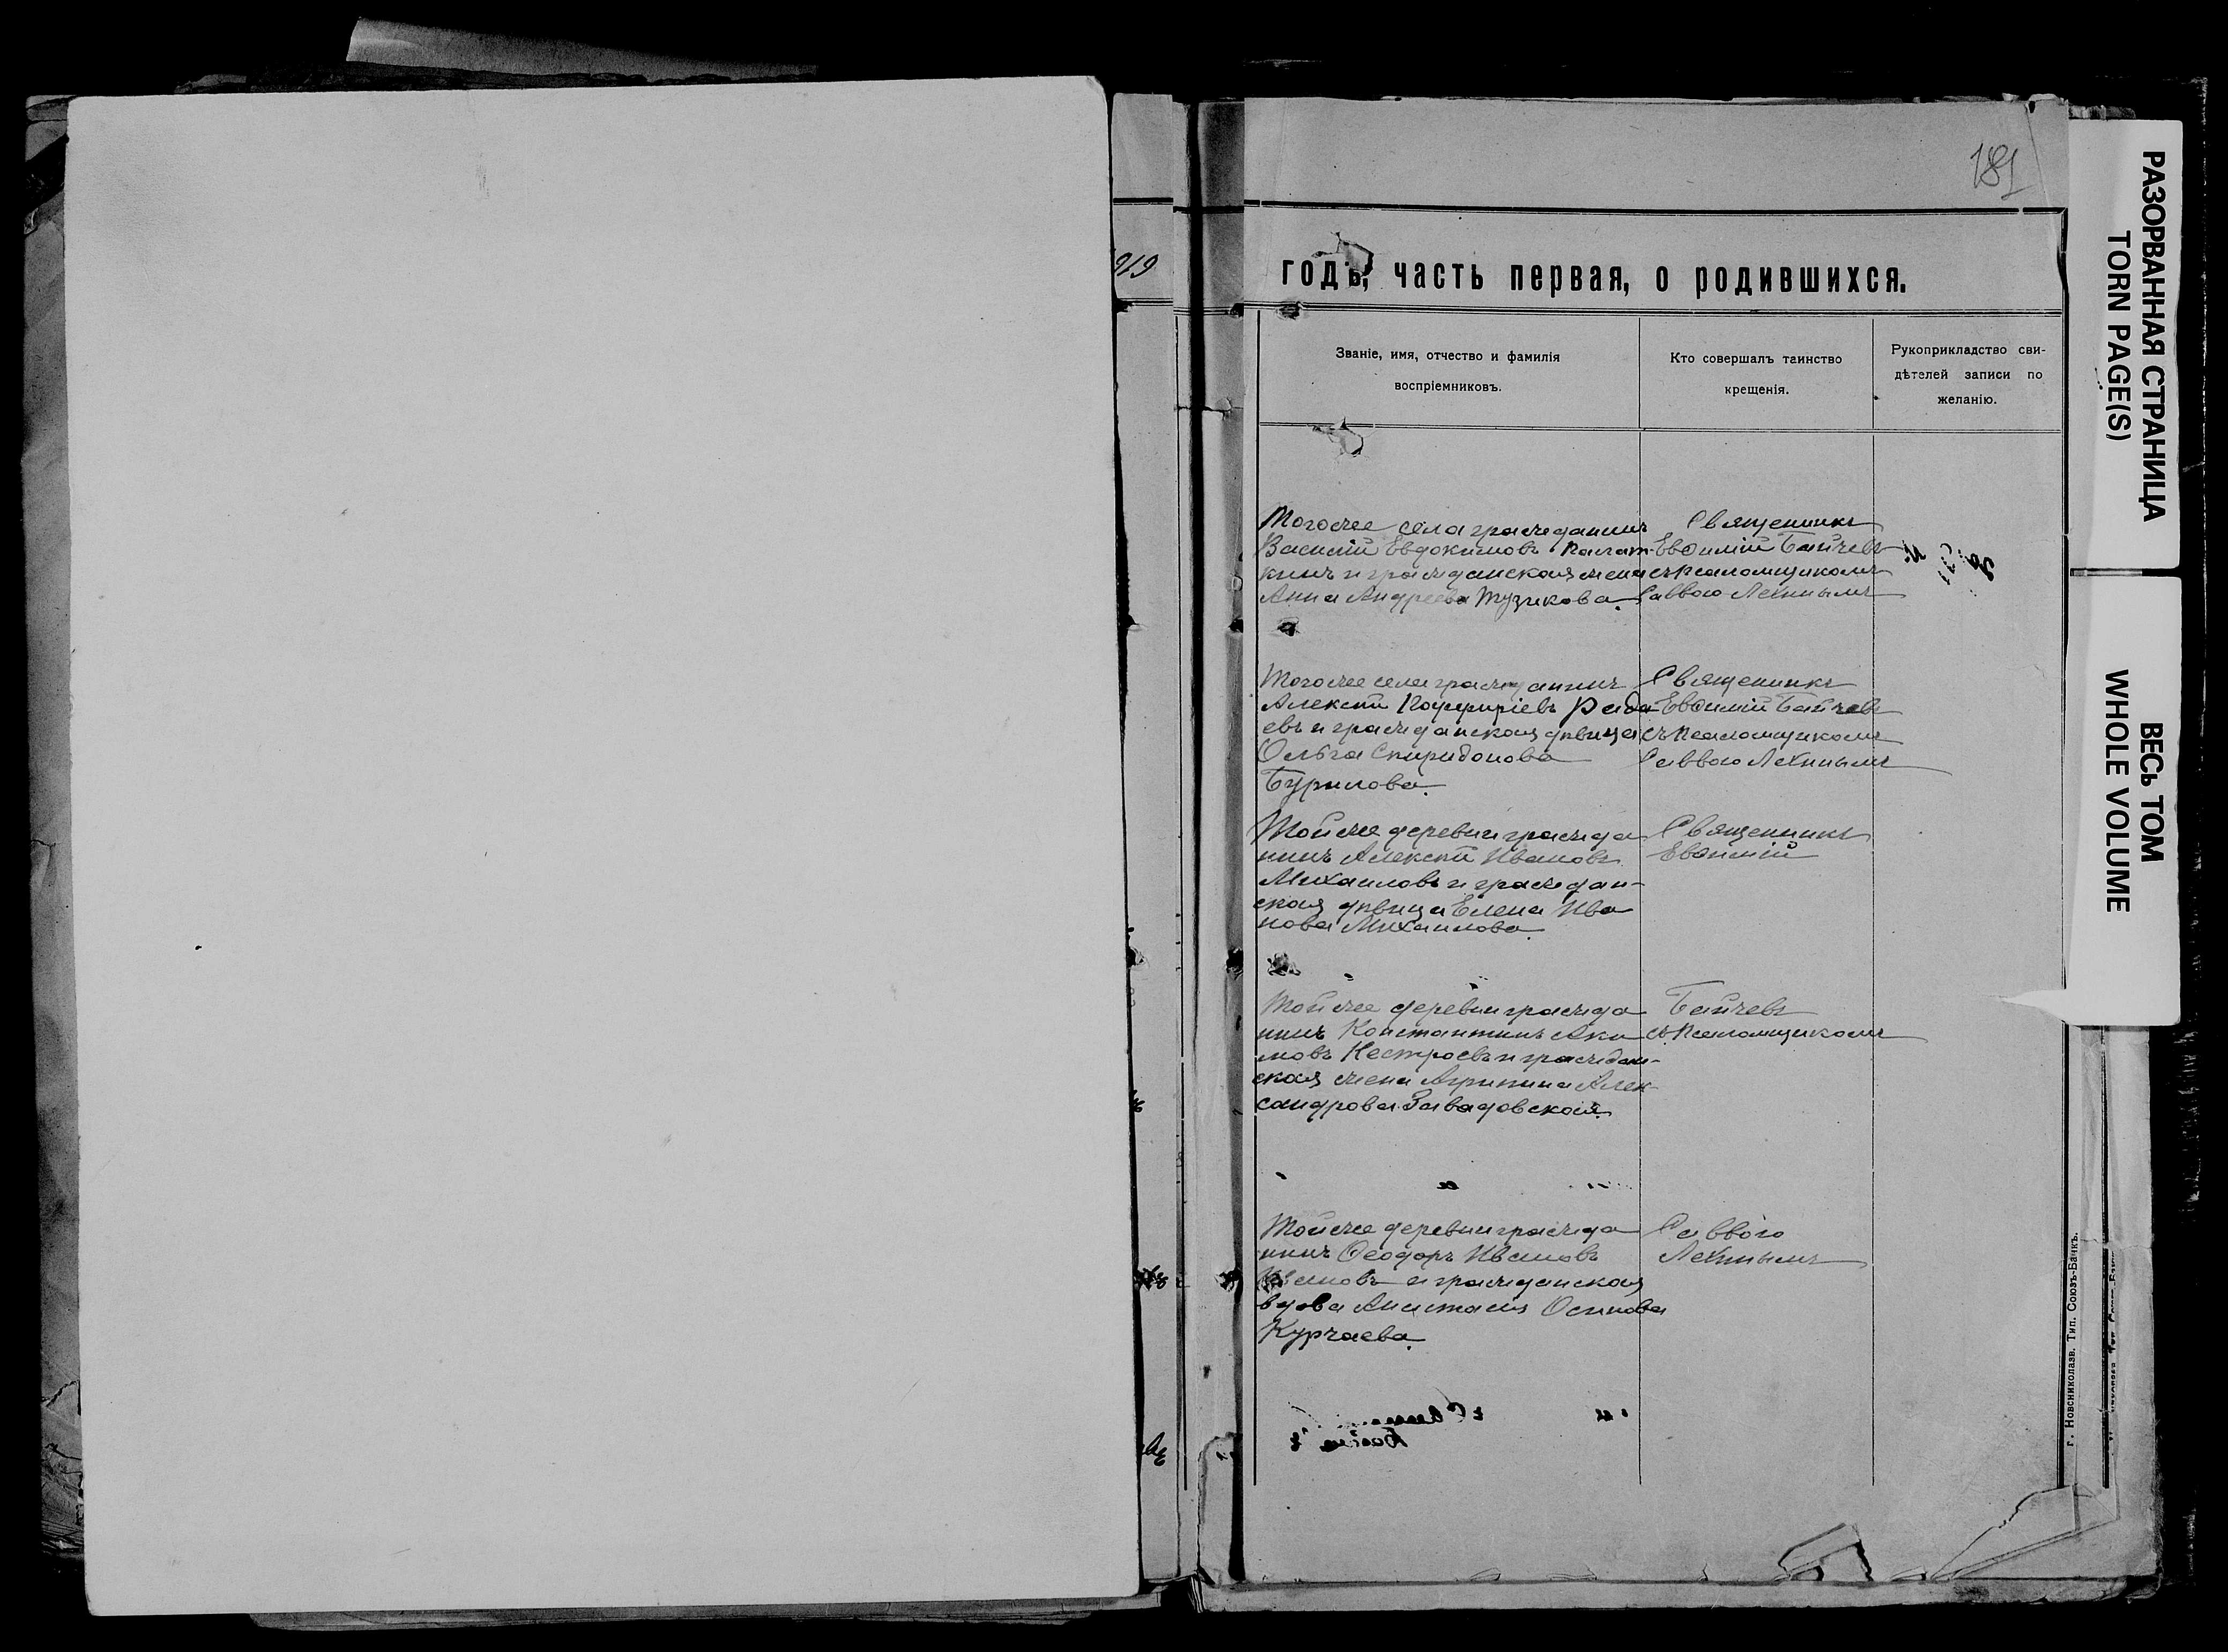 181
919
годъ, часть первая, о родившихся.
Званіе, имя, отчество и фамилія
воспріемниковъ.
Кто совершалъ таинство
крещенія.
Рукоприкладство сви-
дѣтелей записи по
желанію.
Тогоже села гражданинъ
Василій Евдокимовъ Палат-
кинъ и гражданская жена
Анна Андреева Тузикова.
Священникъ
Евѳимій Байчевъ
съ псаломщикомъ
Саввою Лехинымъ
Тогоже села гражданинъ
Алексѣй Порфиріевъ Рада-
евъ и гражданская дѣвица
Ольга Спиридонова
Бурилова.
Священникъ
Евѳимій Байчевъ
съ псаломщикомъ
Саввою Лехинымъ
Тойже деревни гражда
нинъ Алексѣй Ивановъ
Михаиловъ и граждан-
ская дѣвица Елена Ива
нова Михаилова.
Священникъ
Евѳимій
Тойже деревни гражда
нинъ Константинъ Аки
мовъ Нестроевъ и граждан-
ская жена Агрипина Алек
сандрова Завадовская.
Байчевъ
съ псаломщикомъ
Тойже деревни гражда
нинъ Ѳеодоръ Ивановъ
Ивановъ и гражданская
вдова Анастасія Осипова
Курчаева.
Саввою
Лехинымъ
г. Новониколаев. Тип. Союзъ-Банкъ.
РАЗОРВАННАЯ СТРАНИЦА
TORN PAGE(S)
ВЕСЬ ТОМ
WHOLE VOLUME